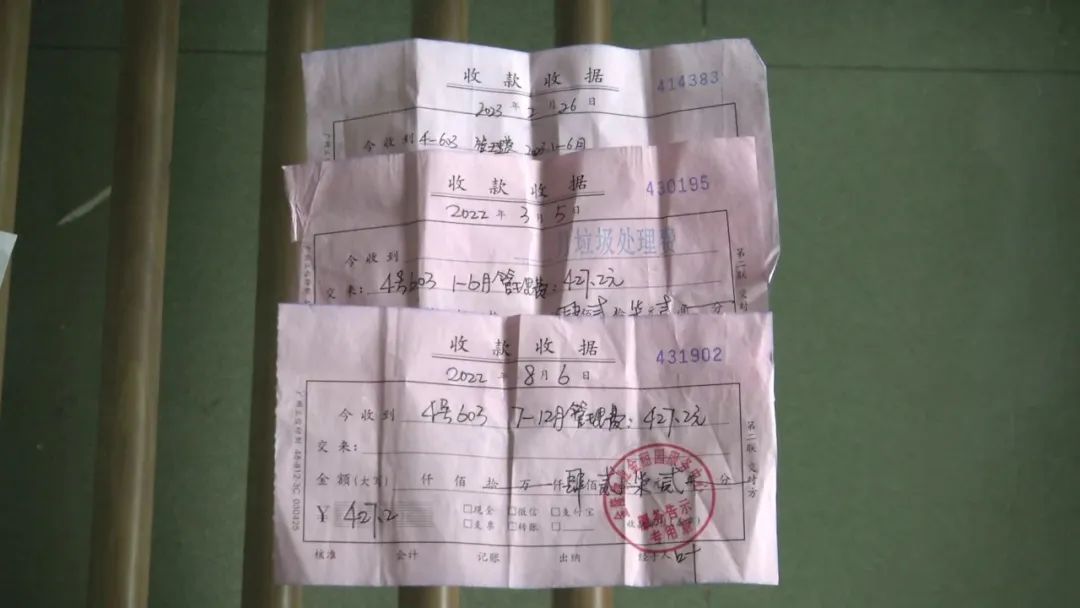 收款收据
414383
2023年2月26日
今收到 4-603 管理费 2023 1-6月
收款收据
430195
2022年3月5日
垃圾处理费
今收到
交来: 4号603 1-6月管理费: 427.2元
分
第二联 交对方
收款收据
431902
2022年8月6日
今收到 4号603 7-12月管理费: 427.2元
交来:
金额(大写) 仟 佰 拾 万 仟 肆佰 贰 柒 贰 分
¥ 427.2
□现金 □微信 □支付宝
□支票 □转账 □
服务告示
专用
核准 会计 记账 出纳 经手人
第二联 交对方
48-812-3C 000425